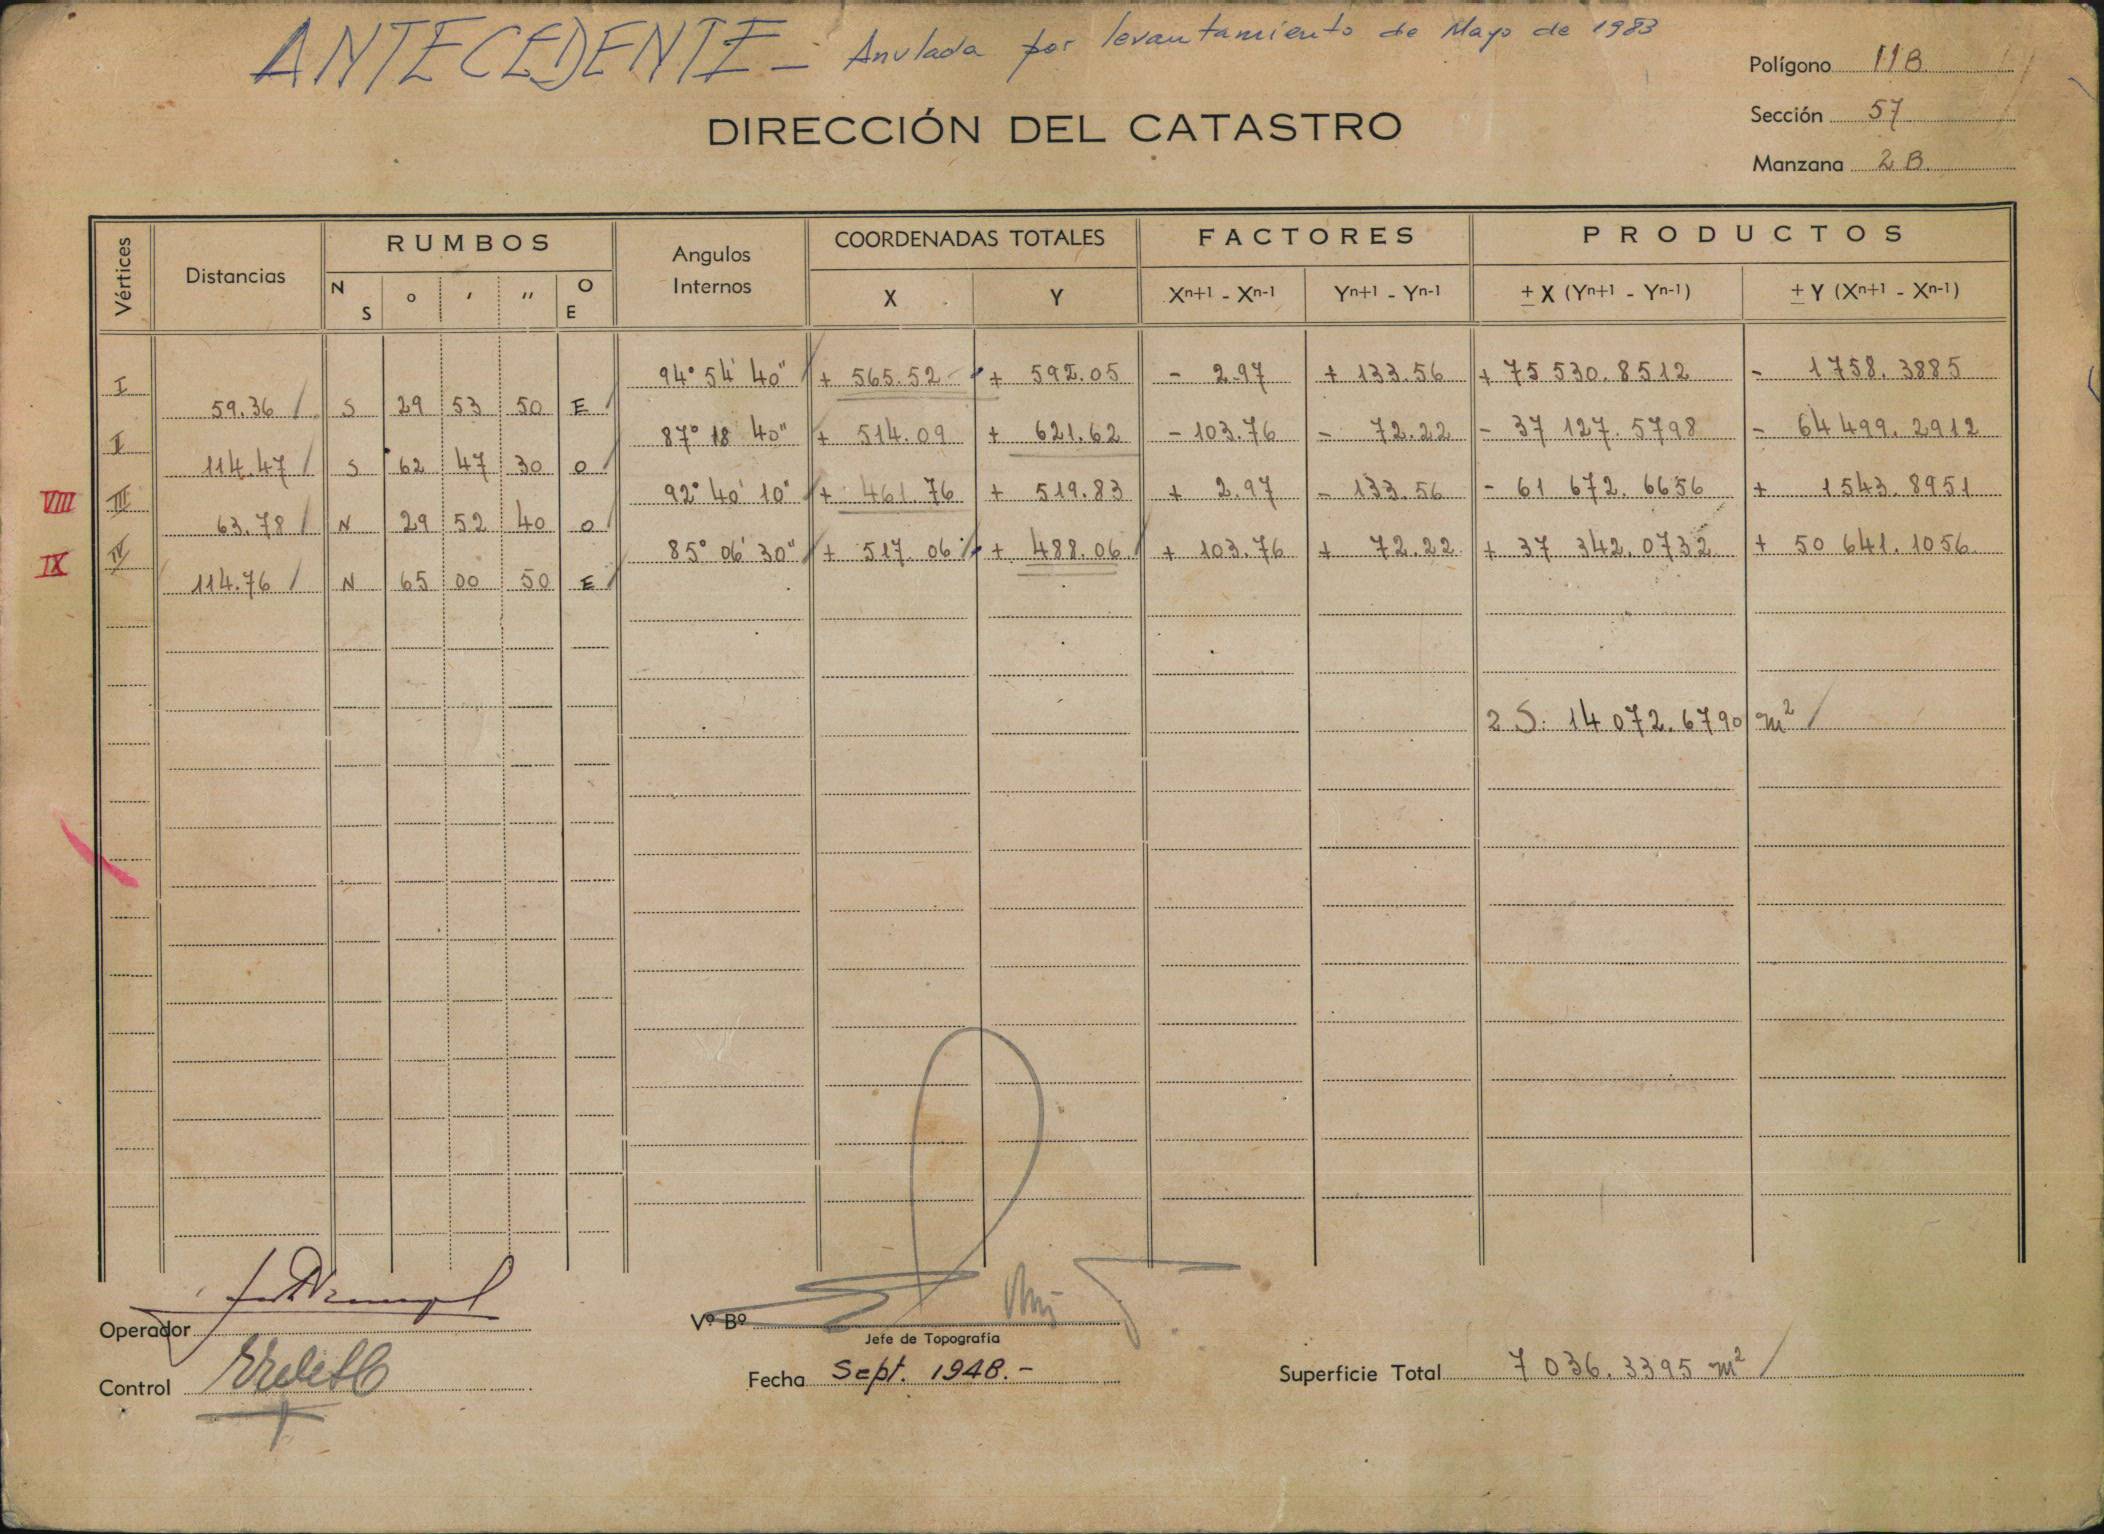 ANTECEDENTE - Anulada por levantamiento de Mayo de 1983
Polígono 11B
DIRECCIÓN DEL CATASTRO
Sección 57
Manzana 2B.
Vértices Distancias RUMBOS Angulos Internos COORDENADAS TOTALES FACTORES PRODUCTOS
N S ° ' '' O E X Y Xn+1 - Xn-1 Yn+1 - Yn-1 ± X (Yn+1 - Yn-1) ± Y (Xn+1 - Xn-1)
I 94° 54' 40" + 565.52 + 592.05 - 2.97 + 133.56 + 75 530.8512 - 1758.3885
59.36 S 29 53 50 E
II 87° 18 40" + 514.09 + 621.62 - 103.76 - 72.22 - 37 127.5798 - 64 499.2912
114.47 S 62 47 30 O
VIII III 92° 40' 10" + 461.76 + 519.83 + 2.97 - 133.56 - 61 672.6656 + 1543.8951
63.78 N 29 52 40 O
IX IV 85° 06' 30" + 517.06 + 488.06 + 103.76 + 72.22 + 37 342.0732 + 50 641.1056
114.76 N 65 00 50 E
2 S: 14 072.6790 m²
Operador
Vº Bº
Jefe de Topografía
Control
Fecha Sept. 1948.-
Superficie Total 7 036.3395 m²